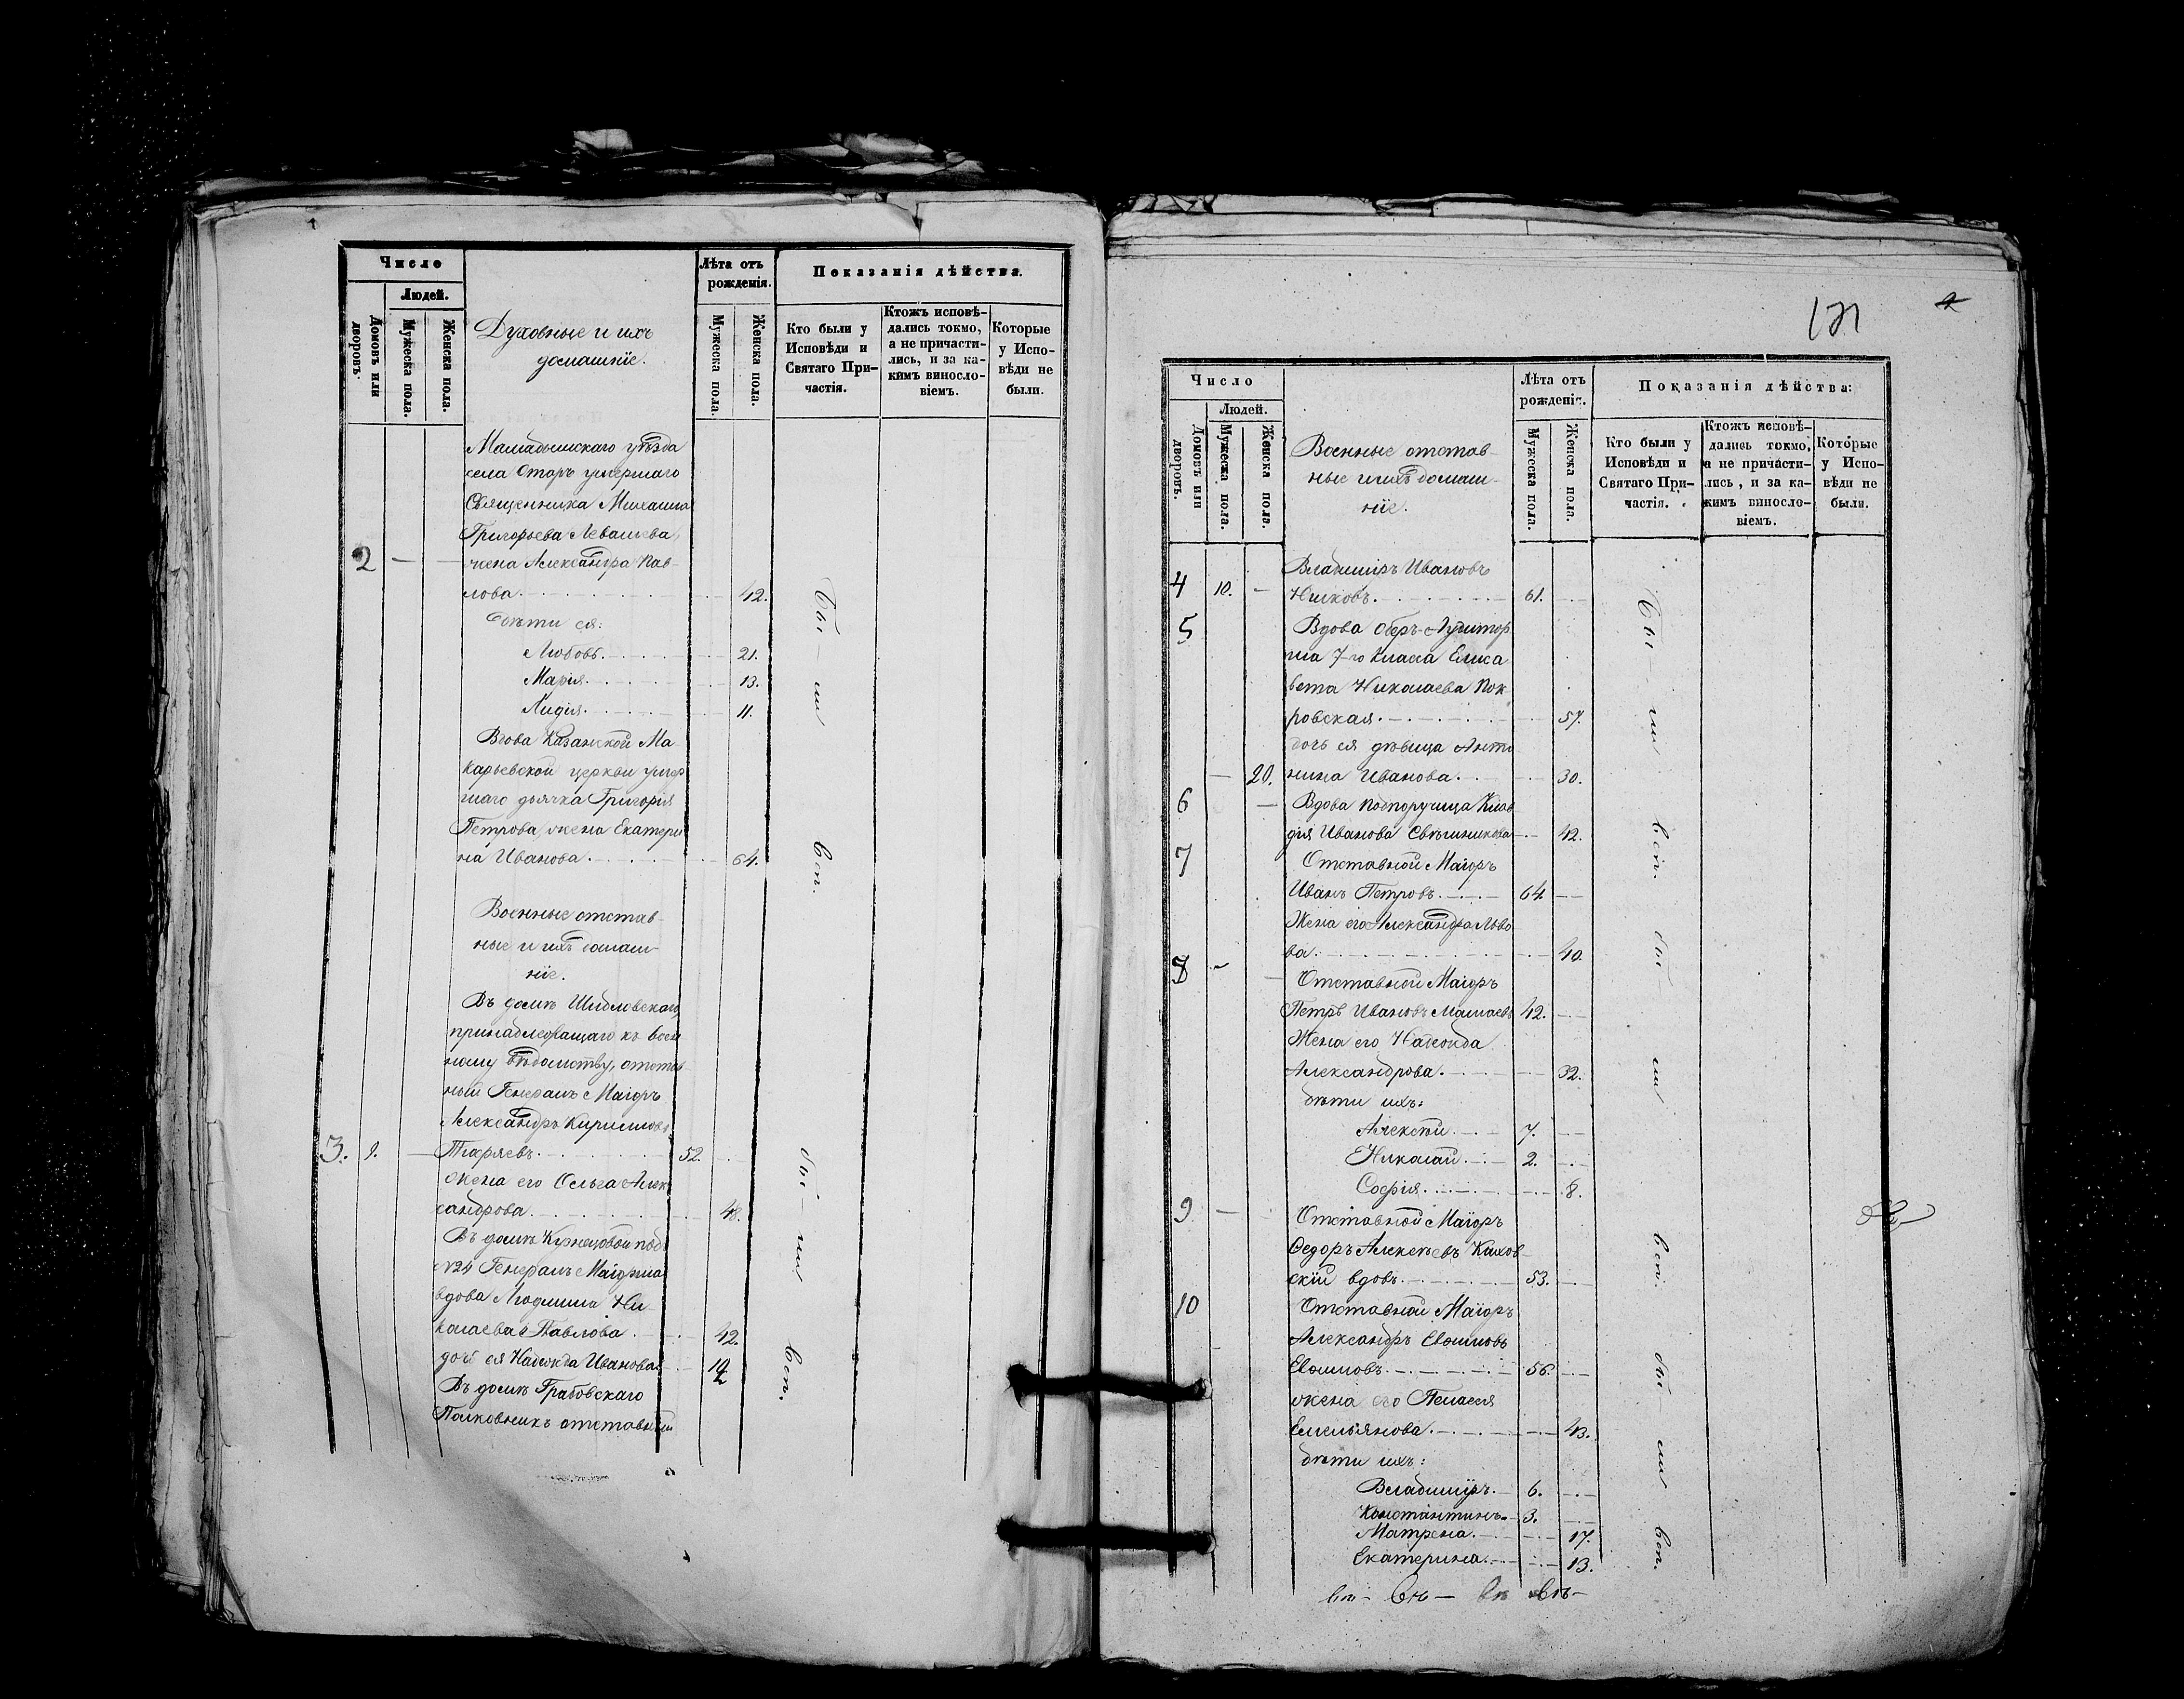 Число
Людей.
Домовъ или дворовъ.
Мужеска пола.
Женска пола.
Духовные и ихъ
домашніе.
Лѣта отъ
рожденія.
Мужеска пола.
Женска пола.
Показанія дѣйства.
Кто были у
Исповѣди и
Святаго При-
частія.
Ктожъ исповѣ-
дались токмо,
а не причасти-
лись, и за ка-
кимъ винослo-
віемъ.
Которые
у Испо-
вѣди не
были.
Мамадышскаго уѣзда
села Отаръ умершаго
Священника Михаила
Григорьева Левашева,
2 — — жена Александра Пав-
лова 42.
дѣти ея:
Любовь 21.
Марія 13.
Лидія 11.
Вдова Казанской Ма
карьевской церкви умер
шаго дьячка Григорія
Петрова жена Екатери
на Иванова 64.
Бы — ли вси.
Военные отстав-
ные и ихъ домаш-
ніе.
Въ домѣ
принадлежащаго къ воен
ному вѣдомству, отстав
ной Генералъ Маіоръ
Александръ Кирилловъ
3. 1. — 52.
жена его Ольга Алек
сандрова 48.
Въ домѣ Кузнецовой подъ
№24 Генералъ Маіорша
вдова Людмила Ни-
колаева Павлова 42.
дочь ея Надежда Иванова
Въ домѣ Грабовскаго
Полковникъ отставной
бы — ли вси.
171
Число
Людей.
Домовъ или дворовъ.
Мужеска пола.
Женска пола.
Военные отстав-
ные и ихъ домаш-
ніе.
Лѣта отъ
рожденія.
Мужеска пола.
Женска пола.
Показанія дѣйства:
Кто были у
Исповѣди и
Святаго При-
частія.
Ктожъ исповѣ-
дались токмо,
а не причасти-
лись, и за ка-
кимъ винослo-
віемъ.
Которые
у Испо-
вѣди не
были.
Владиміръ Ивановъ
4 10. — 61.
5 Вдова Оберъ-Аудитор
ша 7-го Класса Елиса
вета Николаева Пок
ровская 57.
дочь ея дѣвица Анто
— 20. нина Иванова 30.
6 — Вдова Подпоручица Клав
дія Иванова Свѣшникова 42.
7 Отставной Маіоръ
Иванъ Петровъ 64.
Жена его Александра Льво
ва 40.
8 — — Отставной Маіоръ
Петръ Ивановъ Мамаевъ 42.
Жена его Надежда
Александрова 32.
дѣти ихъ:
Алексѣй 7.
Николай 2.
Софія 8.
9 — Отставной Маіоръ
Ѳедоръ Алексѣевъ Кахов-
скій вдовъ 53.
10 Отставной Маіоръ
Александръ
56.
жена его Пелагея
Емельянова 43.
дѣти ихъ:
Владиміръ 6.
Константинъ 3.
Матрена 17.
Екатерина 13.
Бы — ли вси. бы — ли вси. бы — ли вси.